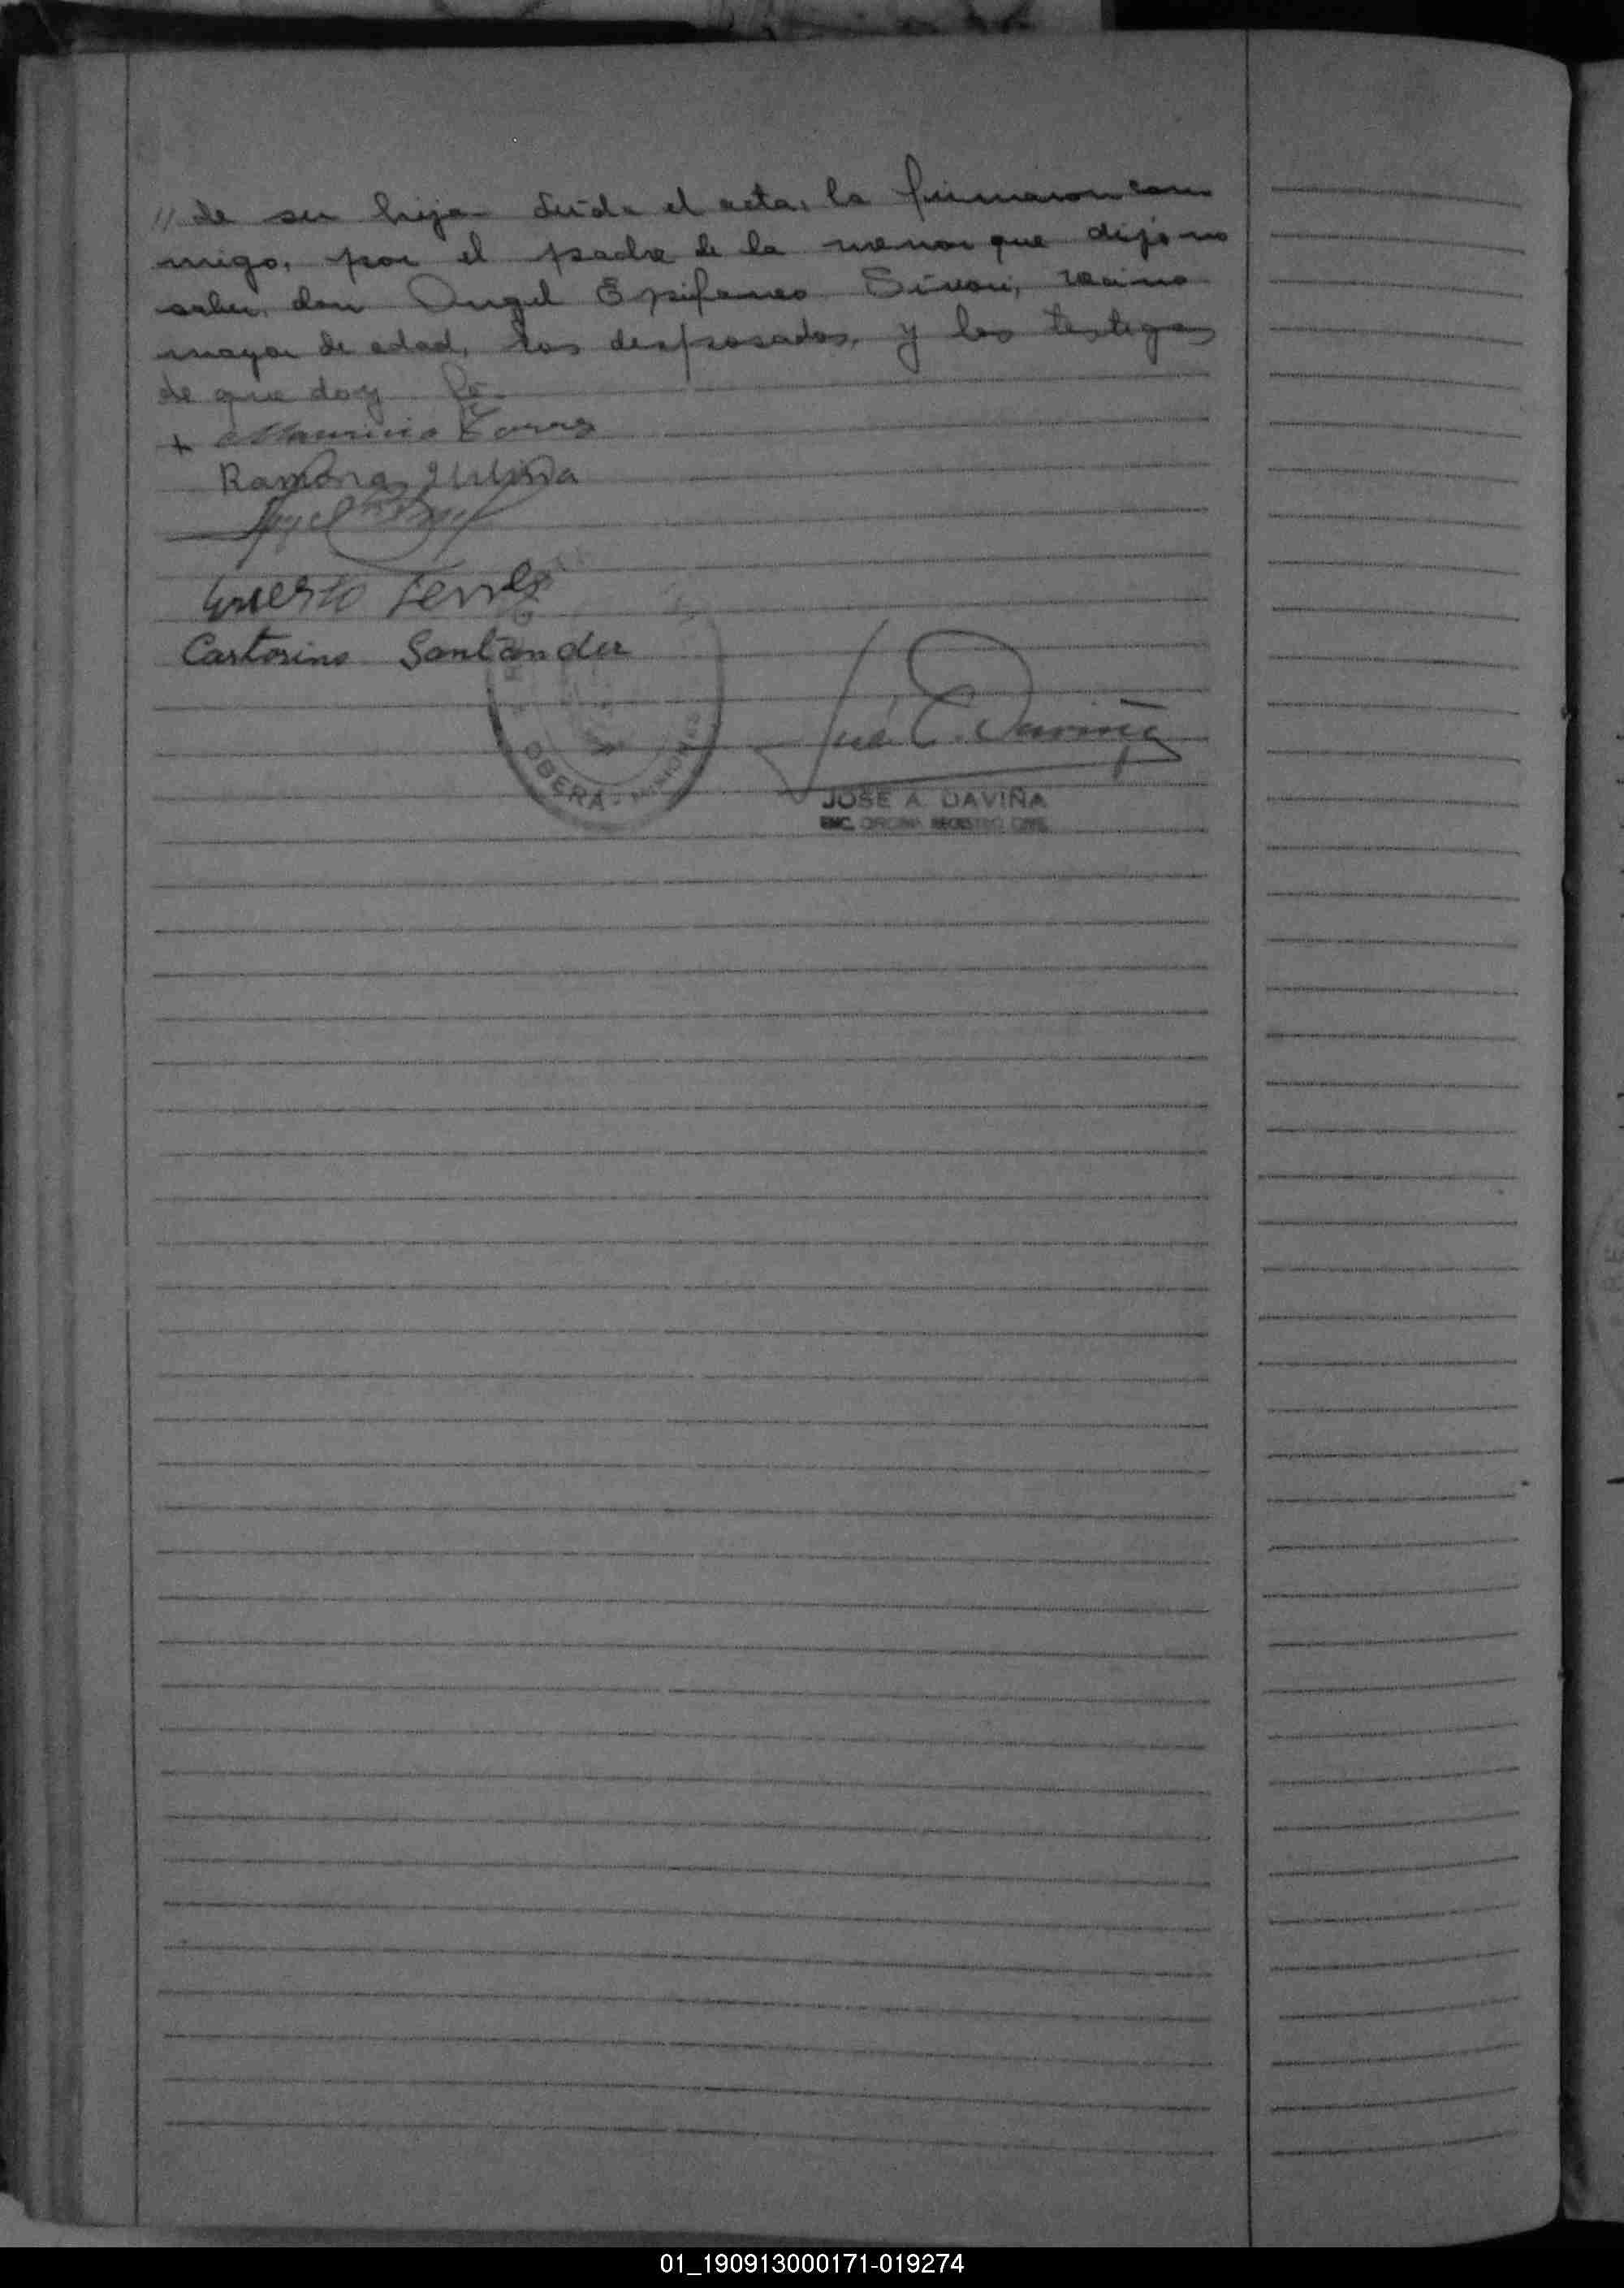 // de su hija. Leída el acta, la firmaron con
migo, por el padre de la menor que dijo no
saber, don Angel Epifaneo Sivori, vecino
mayor de edad, los desposados, y los testigos
de que doy fe.
+ Mauricio Torres
Ramona
Castorino Santander
OBERA - MISIONES
José A. Daviña
JOSE A. DAVIÑA
ENC. OFICINA REGISTRO CIVIL
01_190913000171-019274